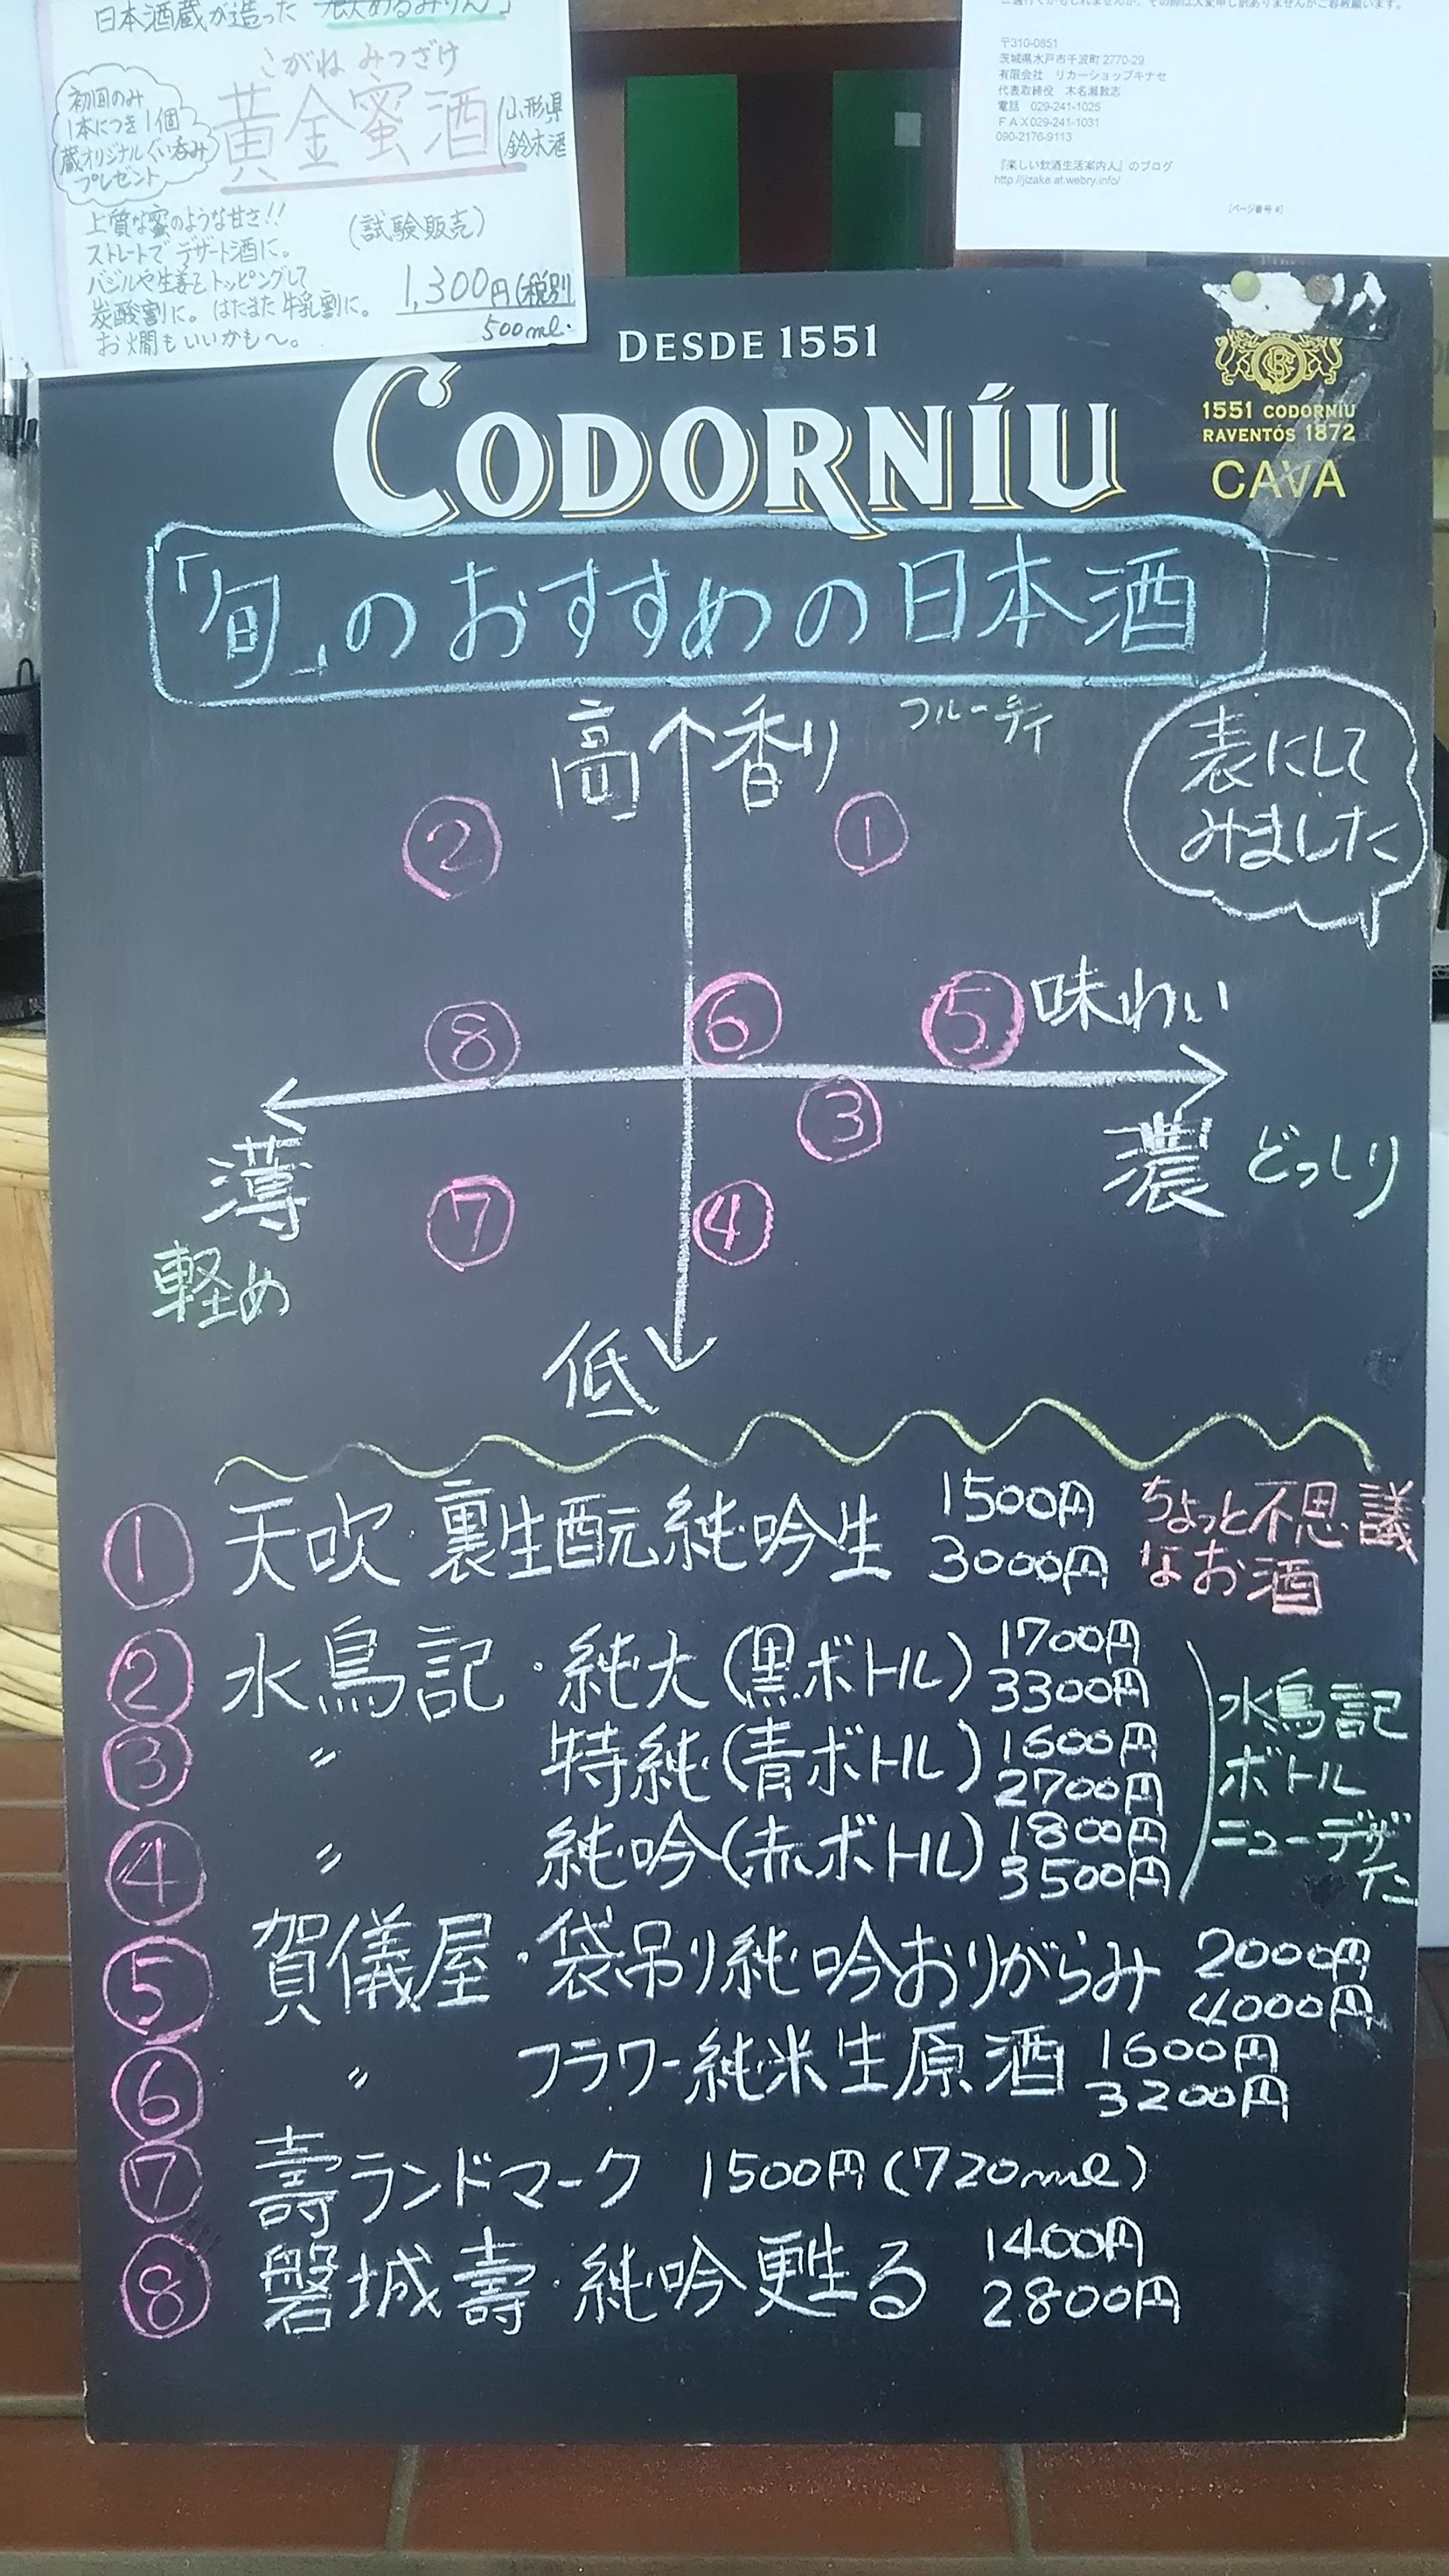 日本酒蔵が造った「飲めるみりん」
こがね みつざけ
黄金蜜酒
山形県
鈴木酒
初回のみ
1本につき1個
蔵オリジナルぐい呑み
プレゼント
上質な蜜のような甘さ!!
(試験販売)
ストレートでデザート酒に。
バジルや生姜をトッピングして
炭酸割に。はたまた牛乳割に。
お燗もいいかも〜。
1,300円(税別
500ml.
〒310-0851
茨城県水戸市千波町2770-29
有限会社 リカーショップキナセ
代表取締役 木名瀬敦志
電話 029-241-1025
FAX029-241-1031
090-2176-9113
『楽しい飲酒生活案内人』のブログ
http://jizake.at.webry.info/
[ページ番号 #]
DESDE 1551
CODORNÍU
1551 CODORNÍU
RAVENTÓS 1872
CAVA
「旬」のおすすめの日本酒
高 香り フルーティ
表にして
みました
② ①
⑧ ⑥ ⑤ 味わい
③
薄 濃 どっしり
軽め
⑦ ④
低
① 天吹・裏生酛純吟生 1500円
3000円
ちょっと不思議
なお酒
② 水鳥記・純大(黒ボトル) 1700円
3300円
③ 〃 特純(青ボトル) 1600円
2700円
④ 〃 純吟(赤ボトル) 1800円
3500円
水鳥記
ボトル
ニューデザ
イン
⑤ 賀儀屋・袋吊り純吟おりがらみ 2000円
4000円
⑥ 〃 フラワー純米生原酒 1600円
3200円
⑦ 壽ランドマーク 1500円(720ml)
⑧ 磐城壽・純吟甦る 1400円
2800円